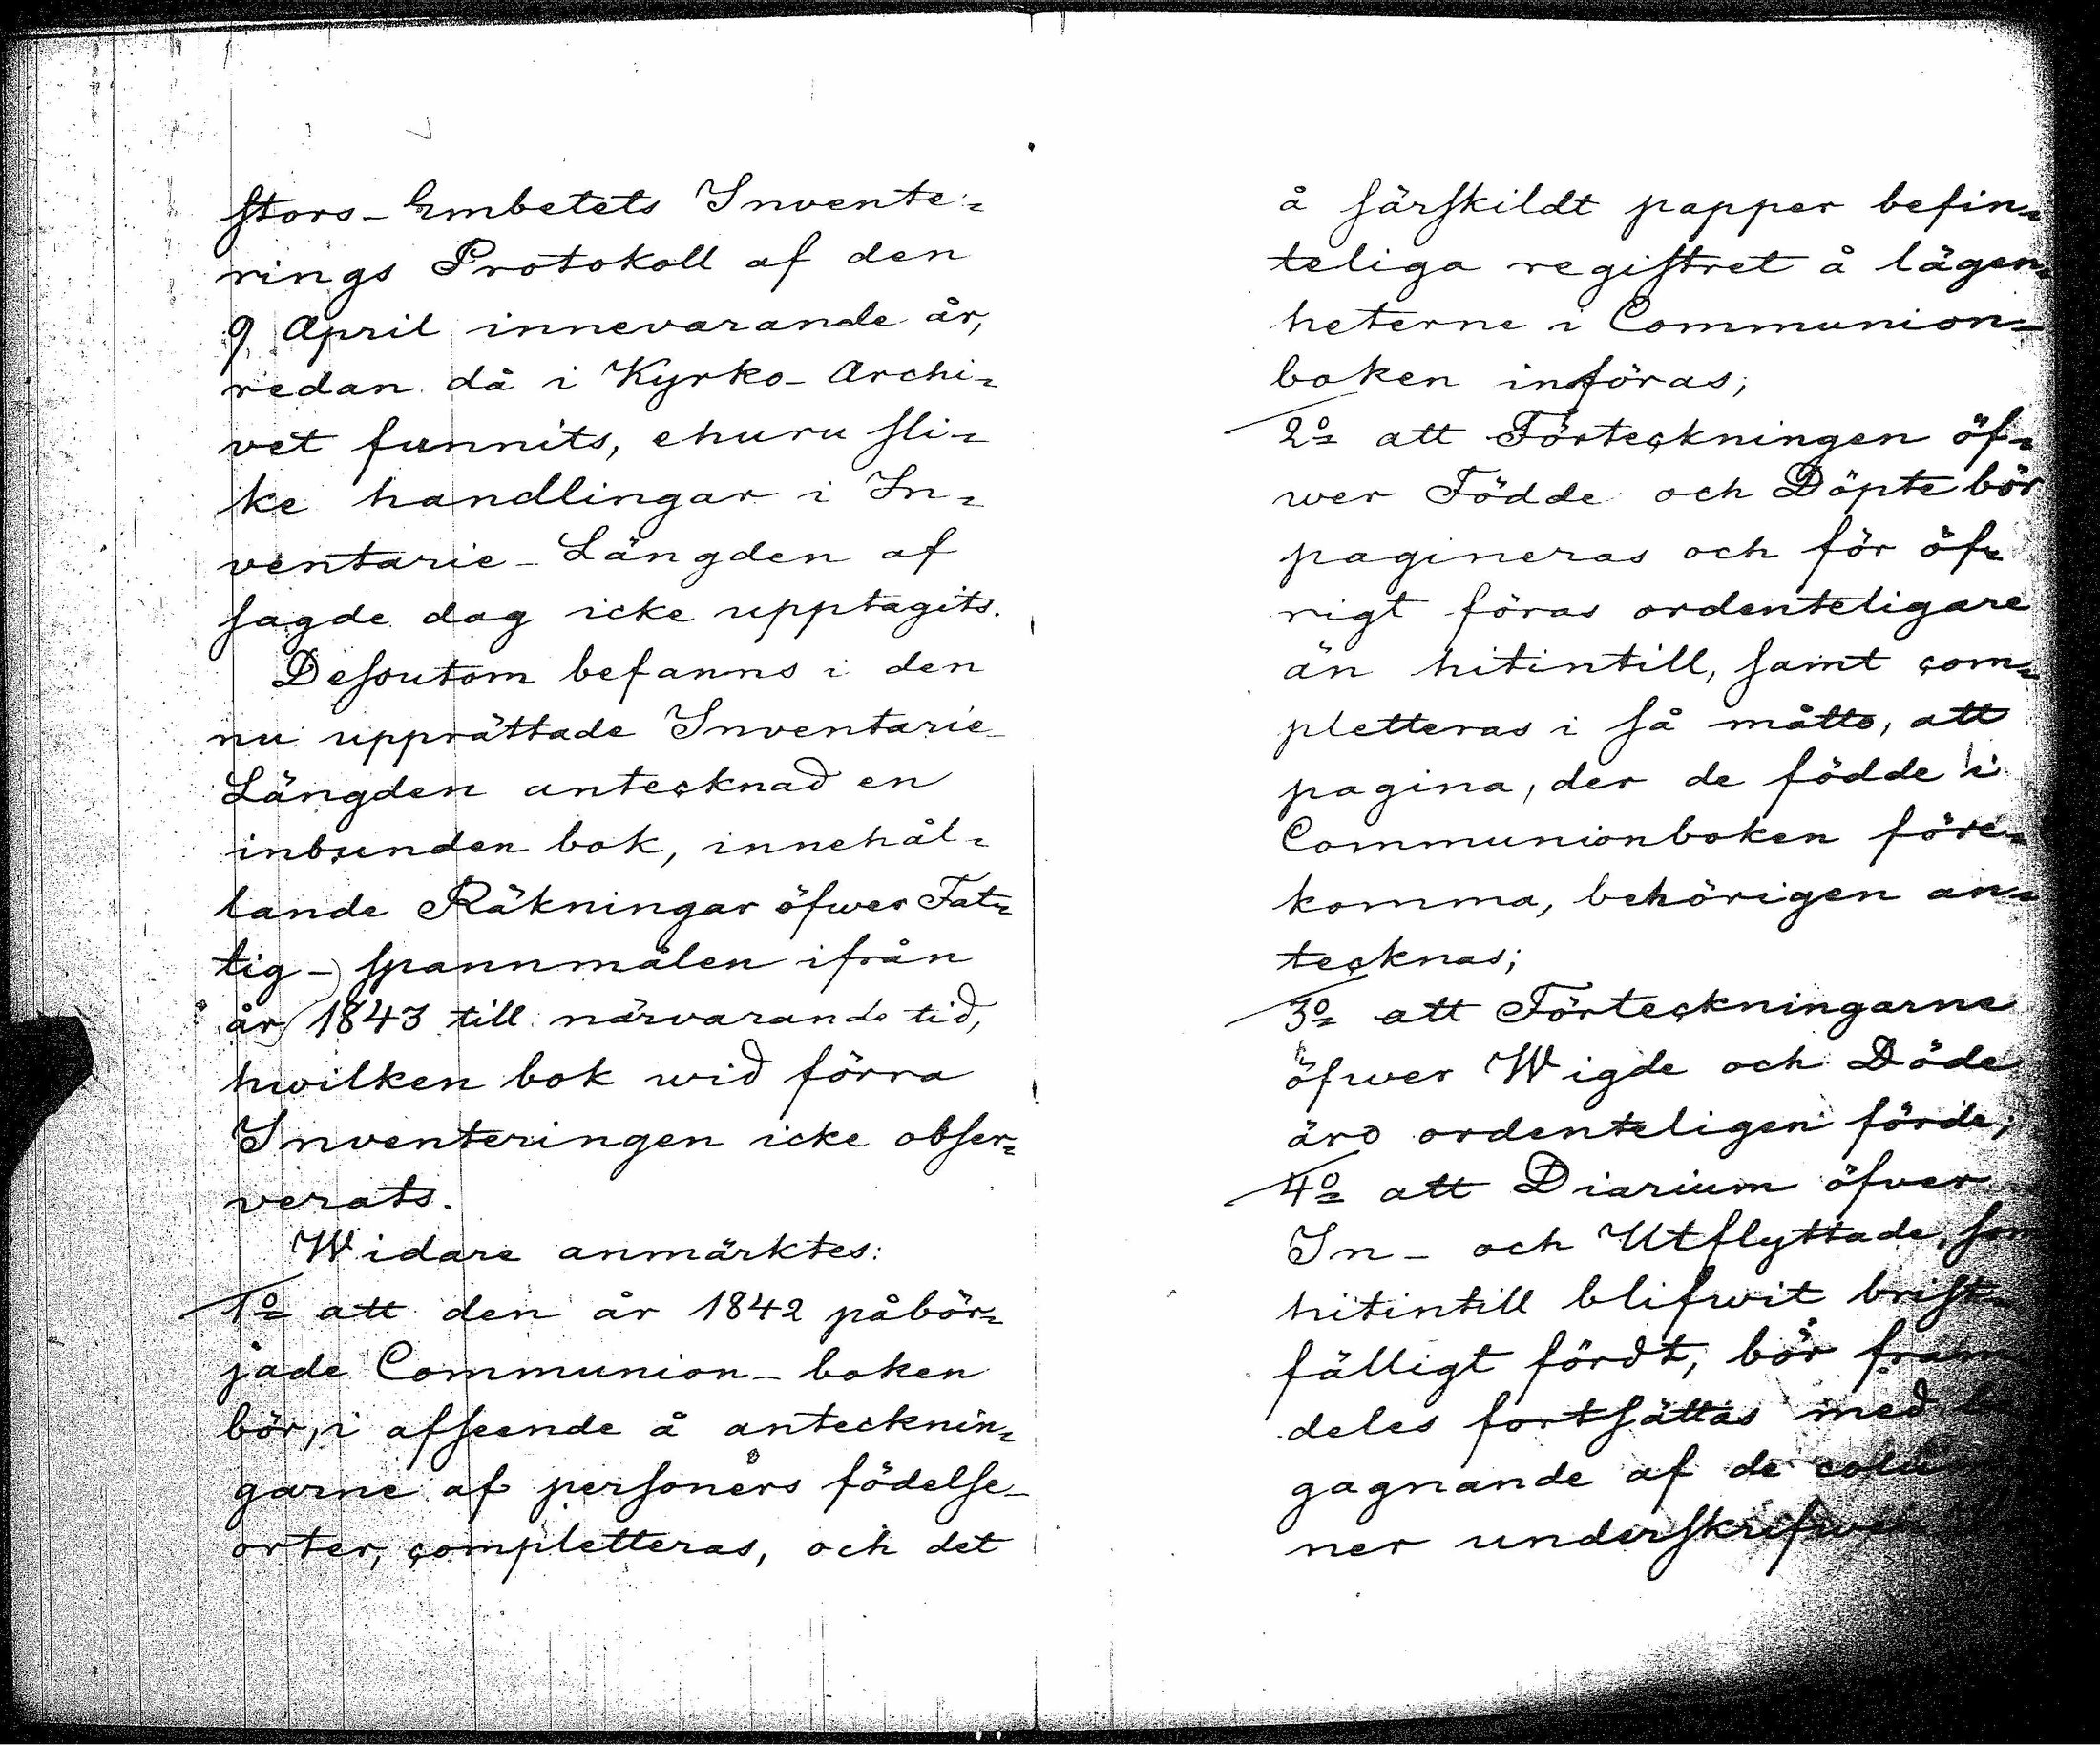 stors-Embetets Invente=
rings Protokoll af den
9 April innevarande år,
redan då i Kyrko-Archi=
vet funnits, ehuru sli=
ke handlingar i In=
ventarie-Längden af
sagde dag icke upptagits.
Dessutom befanns i den
nu upprättade Inventarie-
Längden antecknad en
inbunden bok, innehål=
lande Räkningar öfwer Fat=
tig-spannmålen ifrån
år 1843 till närvarande tid,
hwilken bok wid förra
Inventeringen icke obser=
verats.
Widare anmärktes:
1o= att den år 1842 påbör=
jade Communion-boken
bör, i afseende å antecknin=
garne af personers födelse-
orter, completteras, och det
å särskildt papper befin=
teliga registret å lägen=
heterne i Communion=
boken införas;
2o= att Förteckningen öf=
wer Födde och Döpte bör
pagineras och för öf=
rigt föras ordenteligare
än hitintill, samt com=
pletteras i så måtto, att
pagina, der de födde i
Communionboken före=
komma, behörigen an=
tecknas;
3o= att Förteckningarne
öfwer Wigde och Döde
äro ordenteligen förde;
4o= att Diarium öfver
In- och Utflyttade, som
hitintill blifwit brist=
fälligt fördt, bör fram
deles fortsättas med
gagnande af de colum
ner underskrifwen